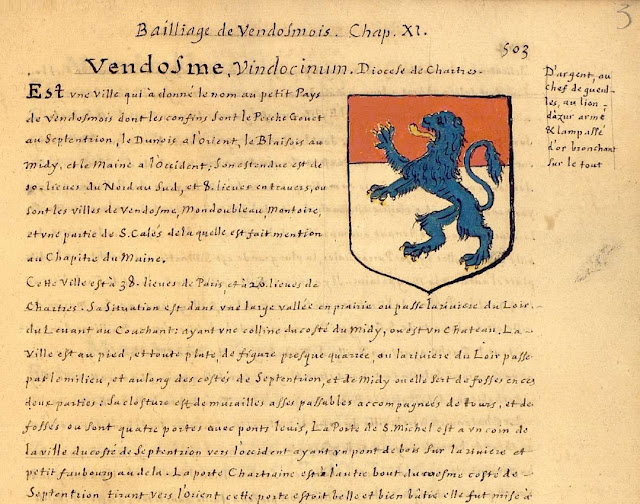 3
Bailliage de Vendosmois. Chap. XI.
503
Vendosme, Vindocinum. Diocese de Chartres.
Est vne ville qui a donné le nom au petit Pays
de Vendosmois dont les confins sont le Perche Gouet
au Septentrion, le Dunois a l'orient, le Blaisois au
Midy, et le Maine a l'occident; son estendue est de
lieues du Nord au Sud, et 8. lieues en travers, ou
sont les villes de Vendosme, Mondoubleau Montoire,
et vne partie de S. Calés de laquelle est fait mention
au Chapitre du Maine.
Cette Ville est à 38. lieues de Paris, et à lieues de
Chartres. Sa situation est dans vne large vallée en prairie ou passe la riuiere du Loir
du Leuant au Couchant: ayant vne colline du costé du Midy, ou est vn Chateau. La
Ville est au pied, et toute plate, de figure presque quarrée, ou la riuiere du Loir passe
par le milieu, et au long des costés de Septentrion, et de Midy ou elle sert de fosses en ces
deux parties: sa closture est de murailles asses passables accompagneés de tours, et de
fossés ou sont quatre portes auec ponts leuis, La Porte de S. Michel est a vn coin de
la ville du costé de Septentrion vers l'occident ayant vn pont de bois sur la riuiere et
petit faubourg au dela. La porte Chartraine est a l'autre bout du mesme costé de
Septentrion tirant vers l'orient cette porte estoit belle et bien bâtie elle fut mise à
D'argent, au
chef de gueul-
les, au lion
d'azur armé
& lampassé
d'or bronchant
sur le tout